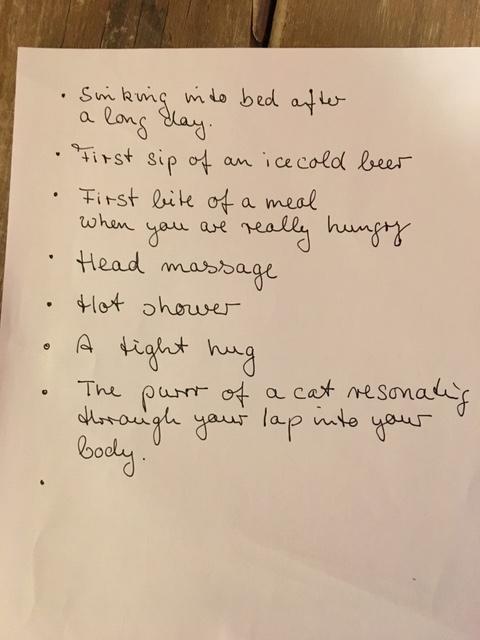 • Sinking into bed after
a long day.
• First sip of an icecold beer
• First bite of a meal
when you are really hungry
• Head massage
• Hot shower
• A tight hug
• The purrr of a cat resonatig
through your lap into your
body.
•